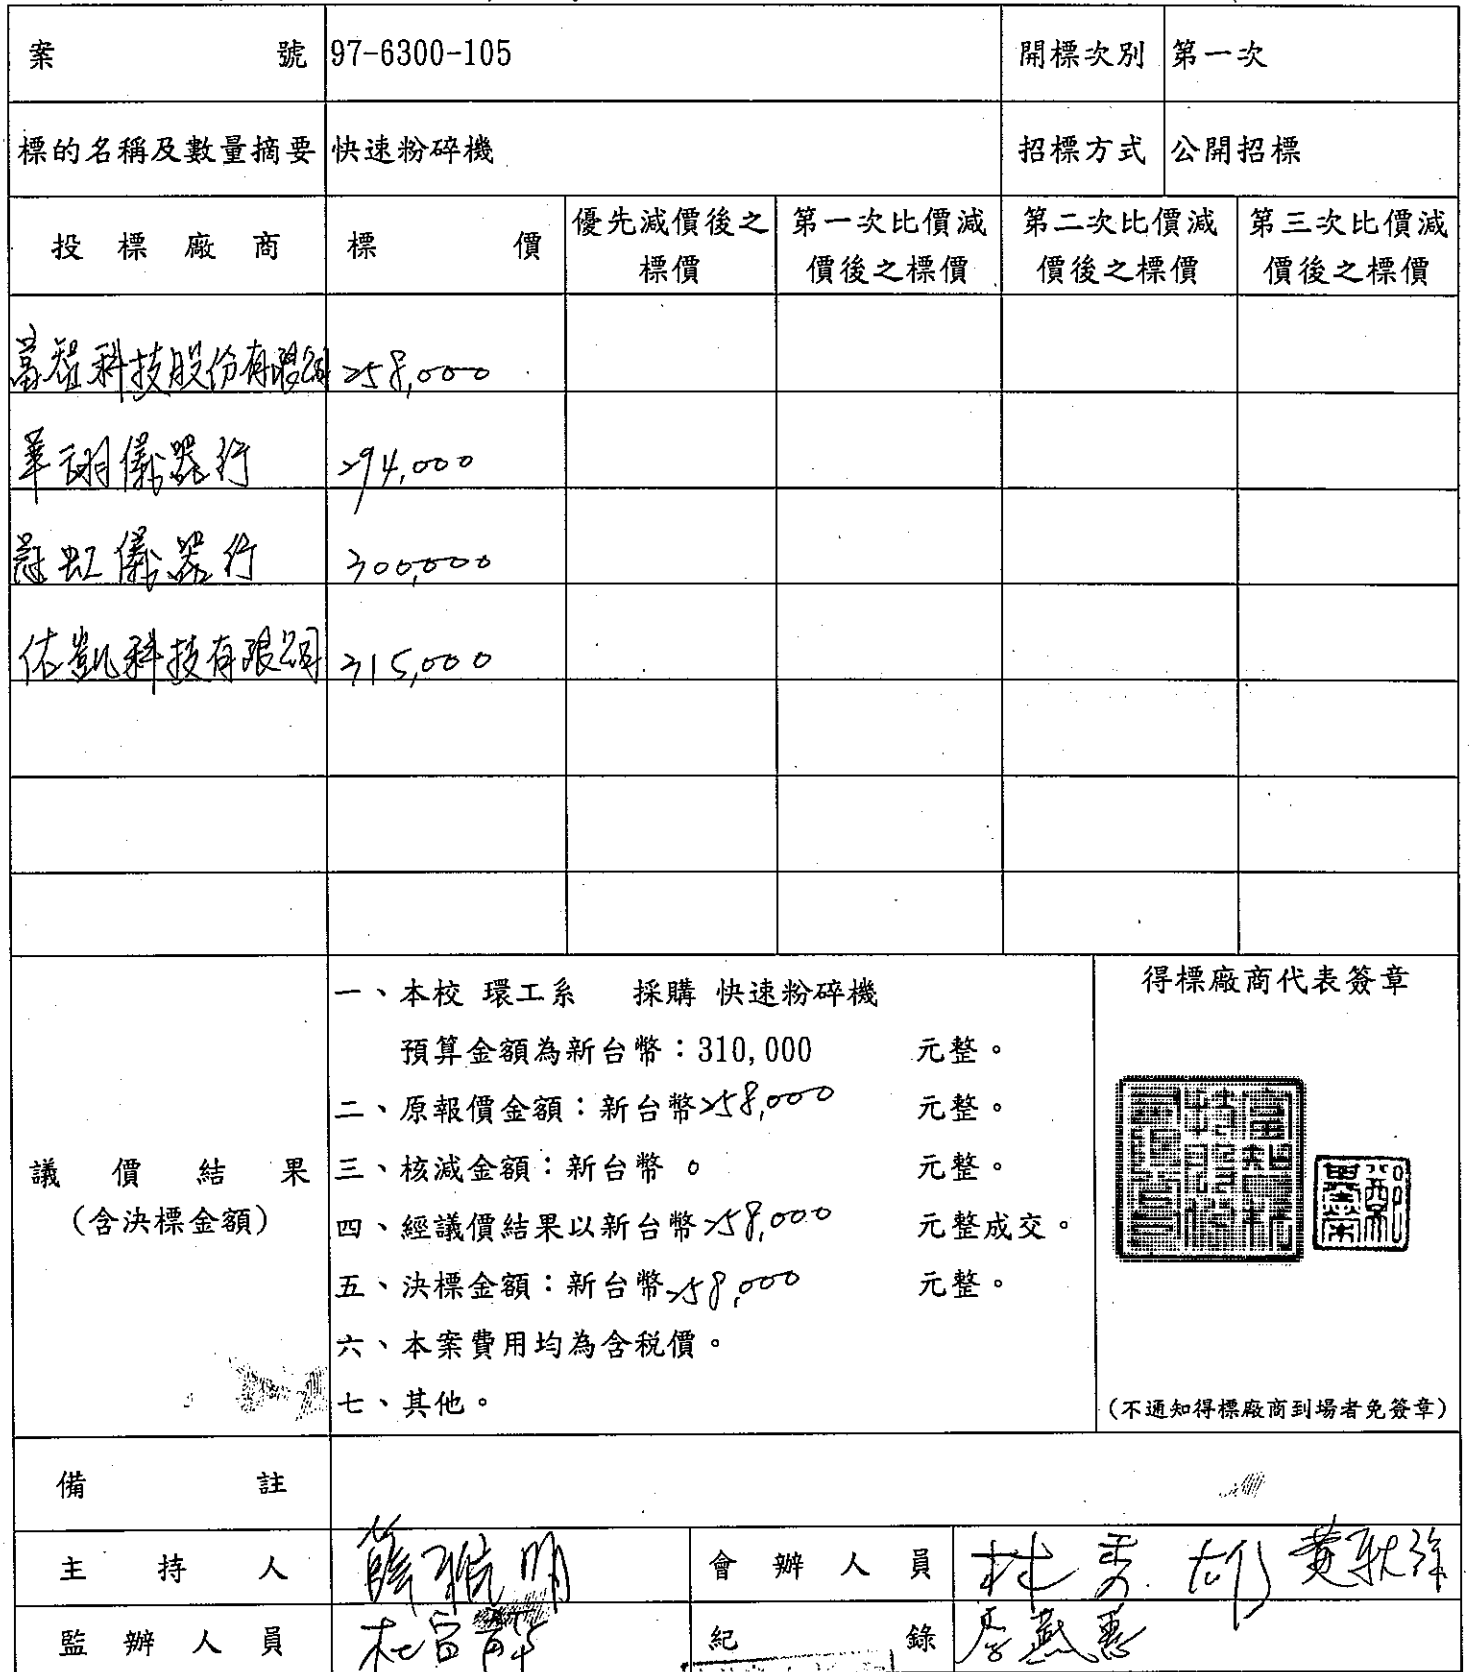 案號 97-6300-105 開標次別 第一次
標的名稱及數量摘要 快速粉碎機 招標方式 公開招標
投標廠商 標價 優先減價後之標價 第一次比價減價後之標價 第二次比價減價後之標價 第三次比價減價後之標價
科技股份有限公司 258,000
華翊儀器行 294,000
冠虹儀器行 300,000
佑凱科技有限公司 315,000
議價結果
(含決標金額)
一、本校 環工系 採購 快速粉碎機
預算金額為新台幣：310,000 元整。
二、原報價金額：新台幣258,000 元整。
三、核減金額：新台幣 0 元整。
四、經議價結果以新台幣258,000 元整成交。
五、決標金額：新台幣258,000 元整。
六、本案費用均為含稅價。
七、其他。
得標廠商代表簽章
(不通知得標廠商到場者免簽章)
備註
主持人 會辦人員 林秀雄
監辦人員 紀錄